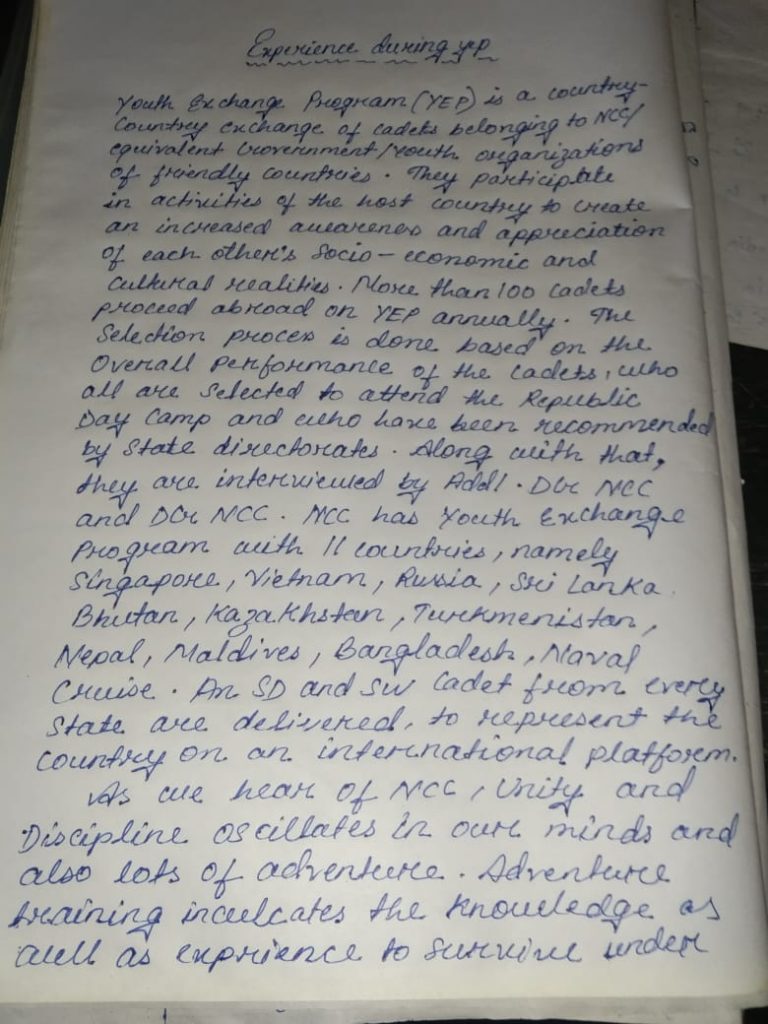 Experience during yep
Youth Exchange Program (YEP) is a country-
Country exchange of cadets belonging to NCC/
equivalent Government/youth organizations
of friendly countries. They participtate
in activities of the host country to create
an increased awareness and appreciation
of each other's Socio-economic and
cultural realities. More than 100 cadets
proceed abroad on YEP annually. The
Selection process is done based on the
Overall performance of the cadets, who
all are selected to attend the Republic
Day Camp and who have been recommended
by State directorates. Along with that,
they are interviewed by Addl. DGr NCC
and DGr NCC. NCC has Youth Exchange
Program with 11 countries, namely
Singapore, Vietnam, Russia, Sri Lanka,
Bhutan, Kazakhstan, Turkmenistan,
Nepal, Maldives, Bangladesh, Naval
Cruise. An SD and SW Cadet from every
State are delivered, to represent the
Country on an international platform.
As we hear of NCC, Unity and
Discipline oscillates in our minds and
also lots of adventure. Adventure
training inculcates the knowledge as
well as exprience to survive under